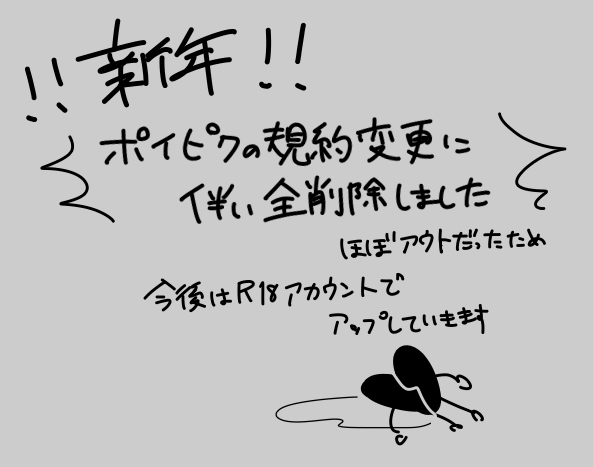 !! 新年 !!
ポイピクの規約変更に
伴い全削除しました
ほぼアウトだったため
今後はR18アカウントで
アップしていきます